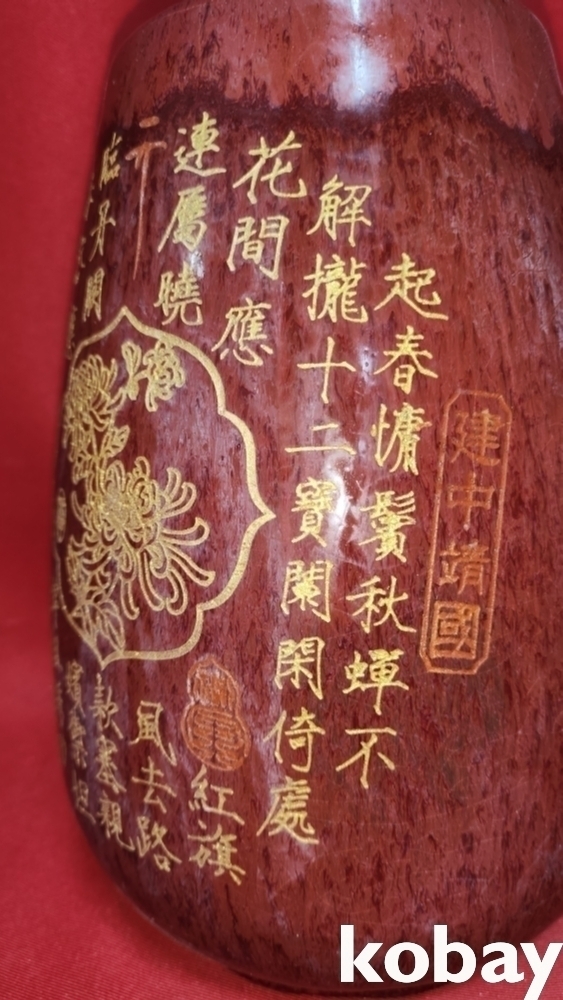 建中靖國
起春慵鬢秋蟬不
解攏十二寶闌閑倚處
花間應
紅旗
連屬曉
風去路
臨丹闕
款塞親
kobay